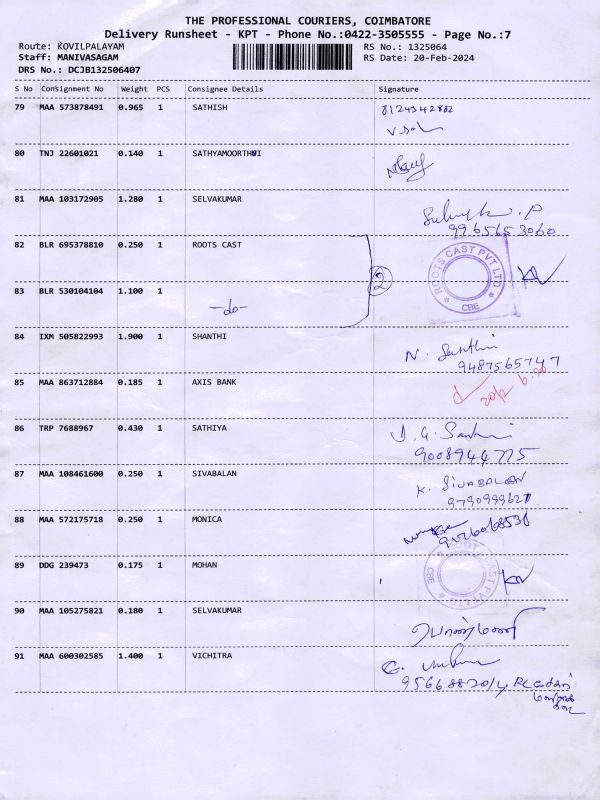 THE PROFESSIONAL COURIERS, COIMBATORE
Delivery Runsheet - KPT - Phone No.:0422-3505555 - Page No.:7
Route: KOVILPALAYAM RS No.: 1325064
Staff: MANIVASAGAM RS Date: 20-Feb-2024
DRS No.: DCJB132506407
S No Consignment No Weight PCS Consignee Details Signature
79 MAA 573878491 0.965 1 SATHISH 8124342882
80 TNJ 22601021 0.140 1 SATHYAMOORTHI
81 MAA 103172905 1.280 1 SELVAKUMAR
9965653060
82 BLR 695378810 0.250 1 ROOTS CAST
ROOTS CAST PVT LTD
CBE
2
83 BLR 530104104 1.100 1
-do-
84 IXM 505822993 1.900 1 SHANTHI N. Santhi
9487565747
85 MAA 863712884 0.185 1 AXIS BANK
20/2
86 TRP 7688967 0.430 1 SATHIYA
9008944775
87 MAA 108461600 0.250 1 SIVABALAN K. SIVABALAN
9790999627
88 MAA 572175718 0.250 1 MONICA
89 DDG 239473 0.175 1 MOHAN
ROOTS CAST PVT LTD
CBE
90 MAA 105275821 0.180 1 SELVAKUMAR பொன்மணி
91 MAA 600302585 1.400 1 VICHITRA